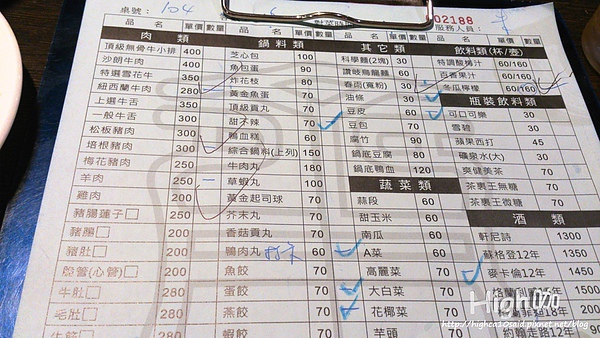 桌號: 104
02188
服務人員:
品 名 單價 數量 品 名 單價 數量 品 名 單價 數量 品 名 單價 數量
肉 類
頂級無骨牛小排 400
沙朗牛肉 400
特選雪花牛 350
紐西蘭牛肉 280
上選牛舌 350
一般牛舌 300
松板豬肉 300
培根豬肉 300
梅花豬肉 250
羊肉 250
雞肉 250
豬腸蓮子□ 250
豬腦□ 200
豬肚□ 200
腰管(心管)□ 200
牛肚□ 280
毛肚□ 280
鍋 料 類
芝心包 100
魚包蛋 90
炸花枝 80
黃金魚蛋 70
頂級貢丸 70
甜不辣 70
鴨血糕 60
綜合鍋料(上列) 150
牛肉丸 180
草蝦丸 100
黃金起司球 70
芥末丸 70
香菇貢丸 70
鴨肉丸 60
魚餃 70
蛋餃 70
燕餃 70
蝦餃 70
其 它 類
科學麵(2塊) 30
讚岐烏龍麵 60
春雨(寬粉) 30
油條 30
豆皮 60
豆包 70
腐竹 90
鍋底豆腐 80
鍋底鴨血 120
蔬 菜 類
蒜段 60
甜玉米 60
南瓜 60
A菜 60
高麗菜 70
大白菜 70
花椰菜 70
芋頭 70
飲料類(杯/壺)
特調酸梅汁 60/160
百香果汁 60/160
冬瓜檸檬 60/160
瓶裝飲料類
可口可樂 30
雪碧 30
蘋果西打 45
礦泉水(大) 30
爽健美茶 30
茶裏王無糖 30
茶裏王微糖 30
酒 類
軒尼詩 1300
蘇格登12年 1350
麥卡倫12年 1450
1500
High 0々
http://highca10said.pixnet.net/blog